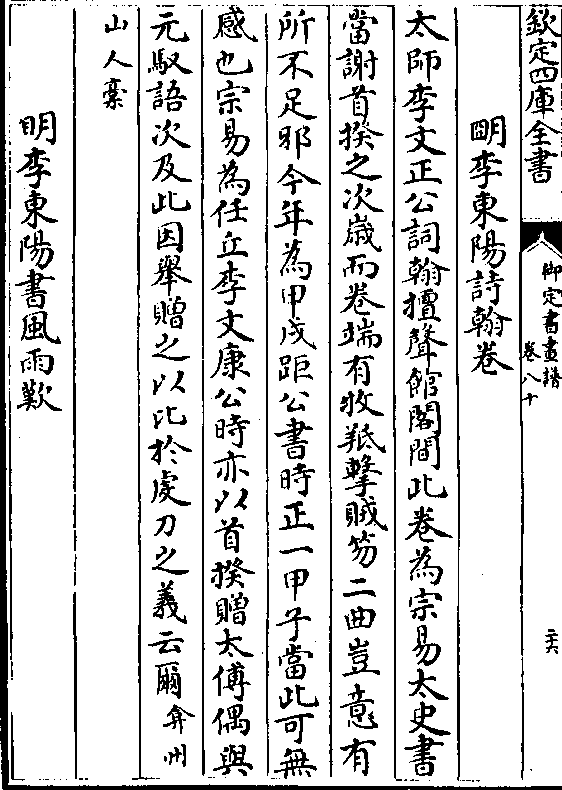 欽定四庫全書
御定書畫譜
卷八十
二六
明李東陽詩翰卷
太師李文正公詞翰擅聲館閣間此卷為宗易太史書
當謝首揆之次歲而卷端有牧羝擊賊笏二曲豈意有
所不足邪今年為甲戌距公書時正一甲子當此可無
感也宗易為任丘李文康公時亦以首揆贈太傅偶與
元馭語次及此因舉贈之以比於虔刀之義云爾弇州
山人稾
明李東陽書風雨歎